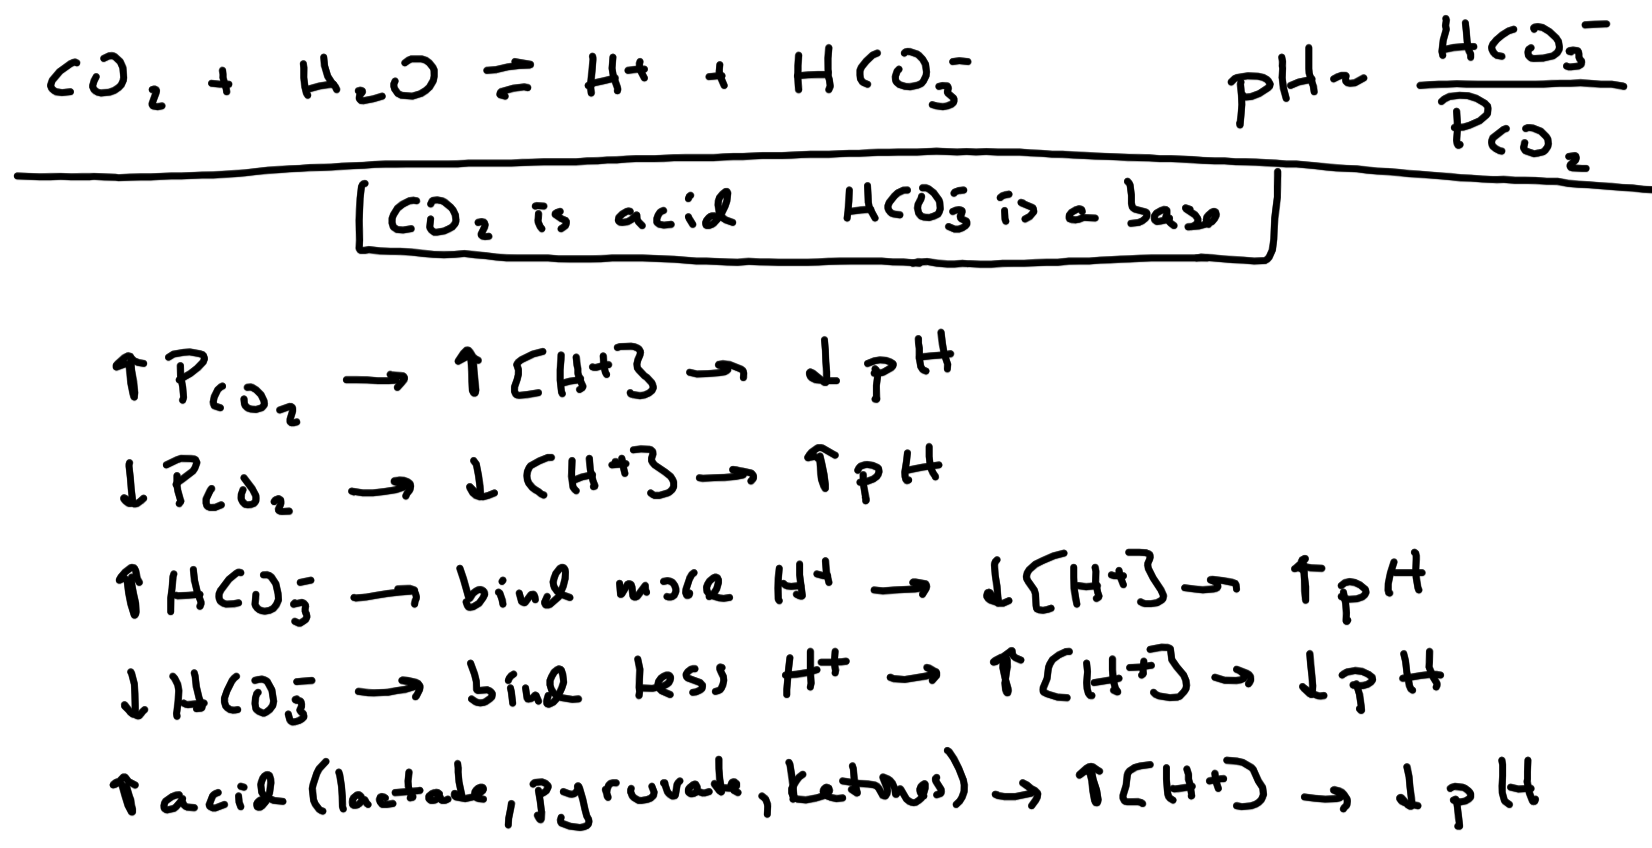 CO₂ + H₂O ⇌ H⁺ + HCO₃⁻ pH ~ HCO₃⁻ / Pco₂
CO₂ is acid HCO₃⁻ is a base
↑ Pco₂ → ↑ [H⁺] → ↓ pH
↓ Pco₂ → ↓ [H⁺] → ↑ pH
↑ HCO₃⁻ → bind more H⁺ → ↓ [H⁺] → ↑ pH
↓ HCO₃⁻ → bind less H⁺ → ↑ [H⁺] → ↓ pH
↑ acid (lactate, pyruvate, ketones) → ↑ [H⁺] → ↓ pH